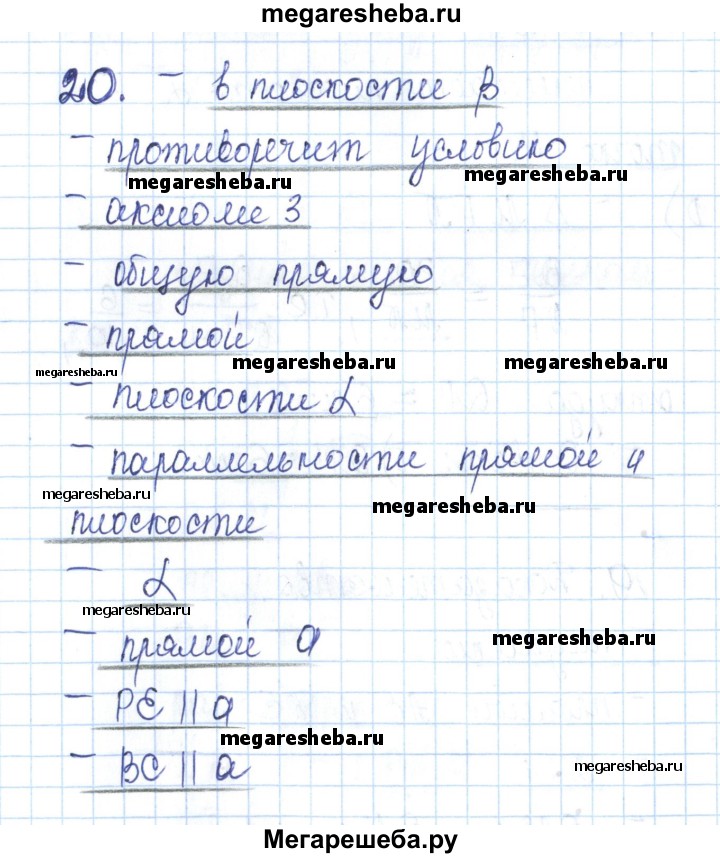 megaresheba.ru
20. – в плоскости β
– противоречит условию
megaresheba.ru megaresheba.ru
– аксиоме 3
– общую прямую
– прямой
megaresheba.ru megaresheba.ru megaresheba.ru
– плоскости α
– параллельности прямой и
megaresheba.ru megaresheba.ru
плоскости
– α
megaresheba.ru
– прямой a
megaresheba.ru
– PE || a
megaresheba.ru
– BC || a
megaresheba.ru
Мегарешеба.ру